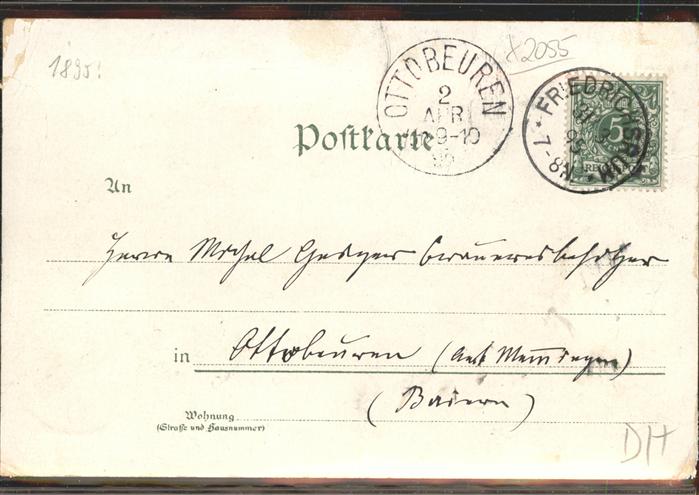 1895!
x2055
OTTOBEUREN
2
APR
9-10
95
FRIEDRICHSRUH
31 3
95
7-8N
5
REICHSPOST
Postkarte
An
Herrn Michel Geiger Brauereibesitzer
in Ottobeuren (Amt Memmingen)
(Baiern)
Wohnung
(Straße und Hausnummer)
D/H